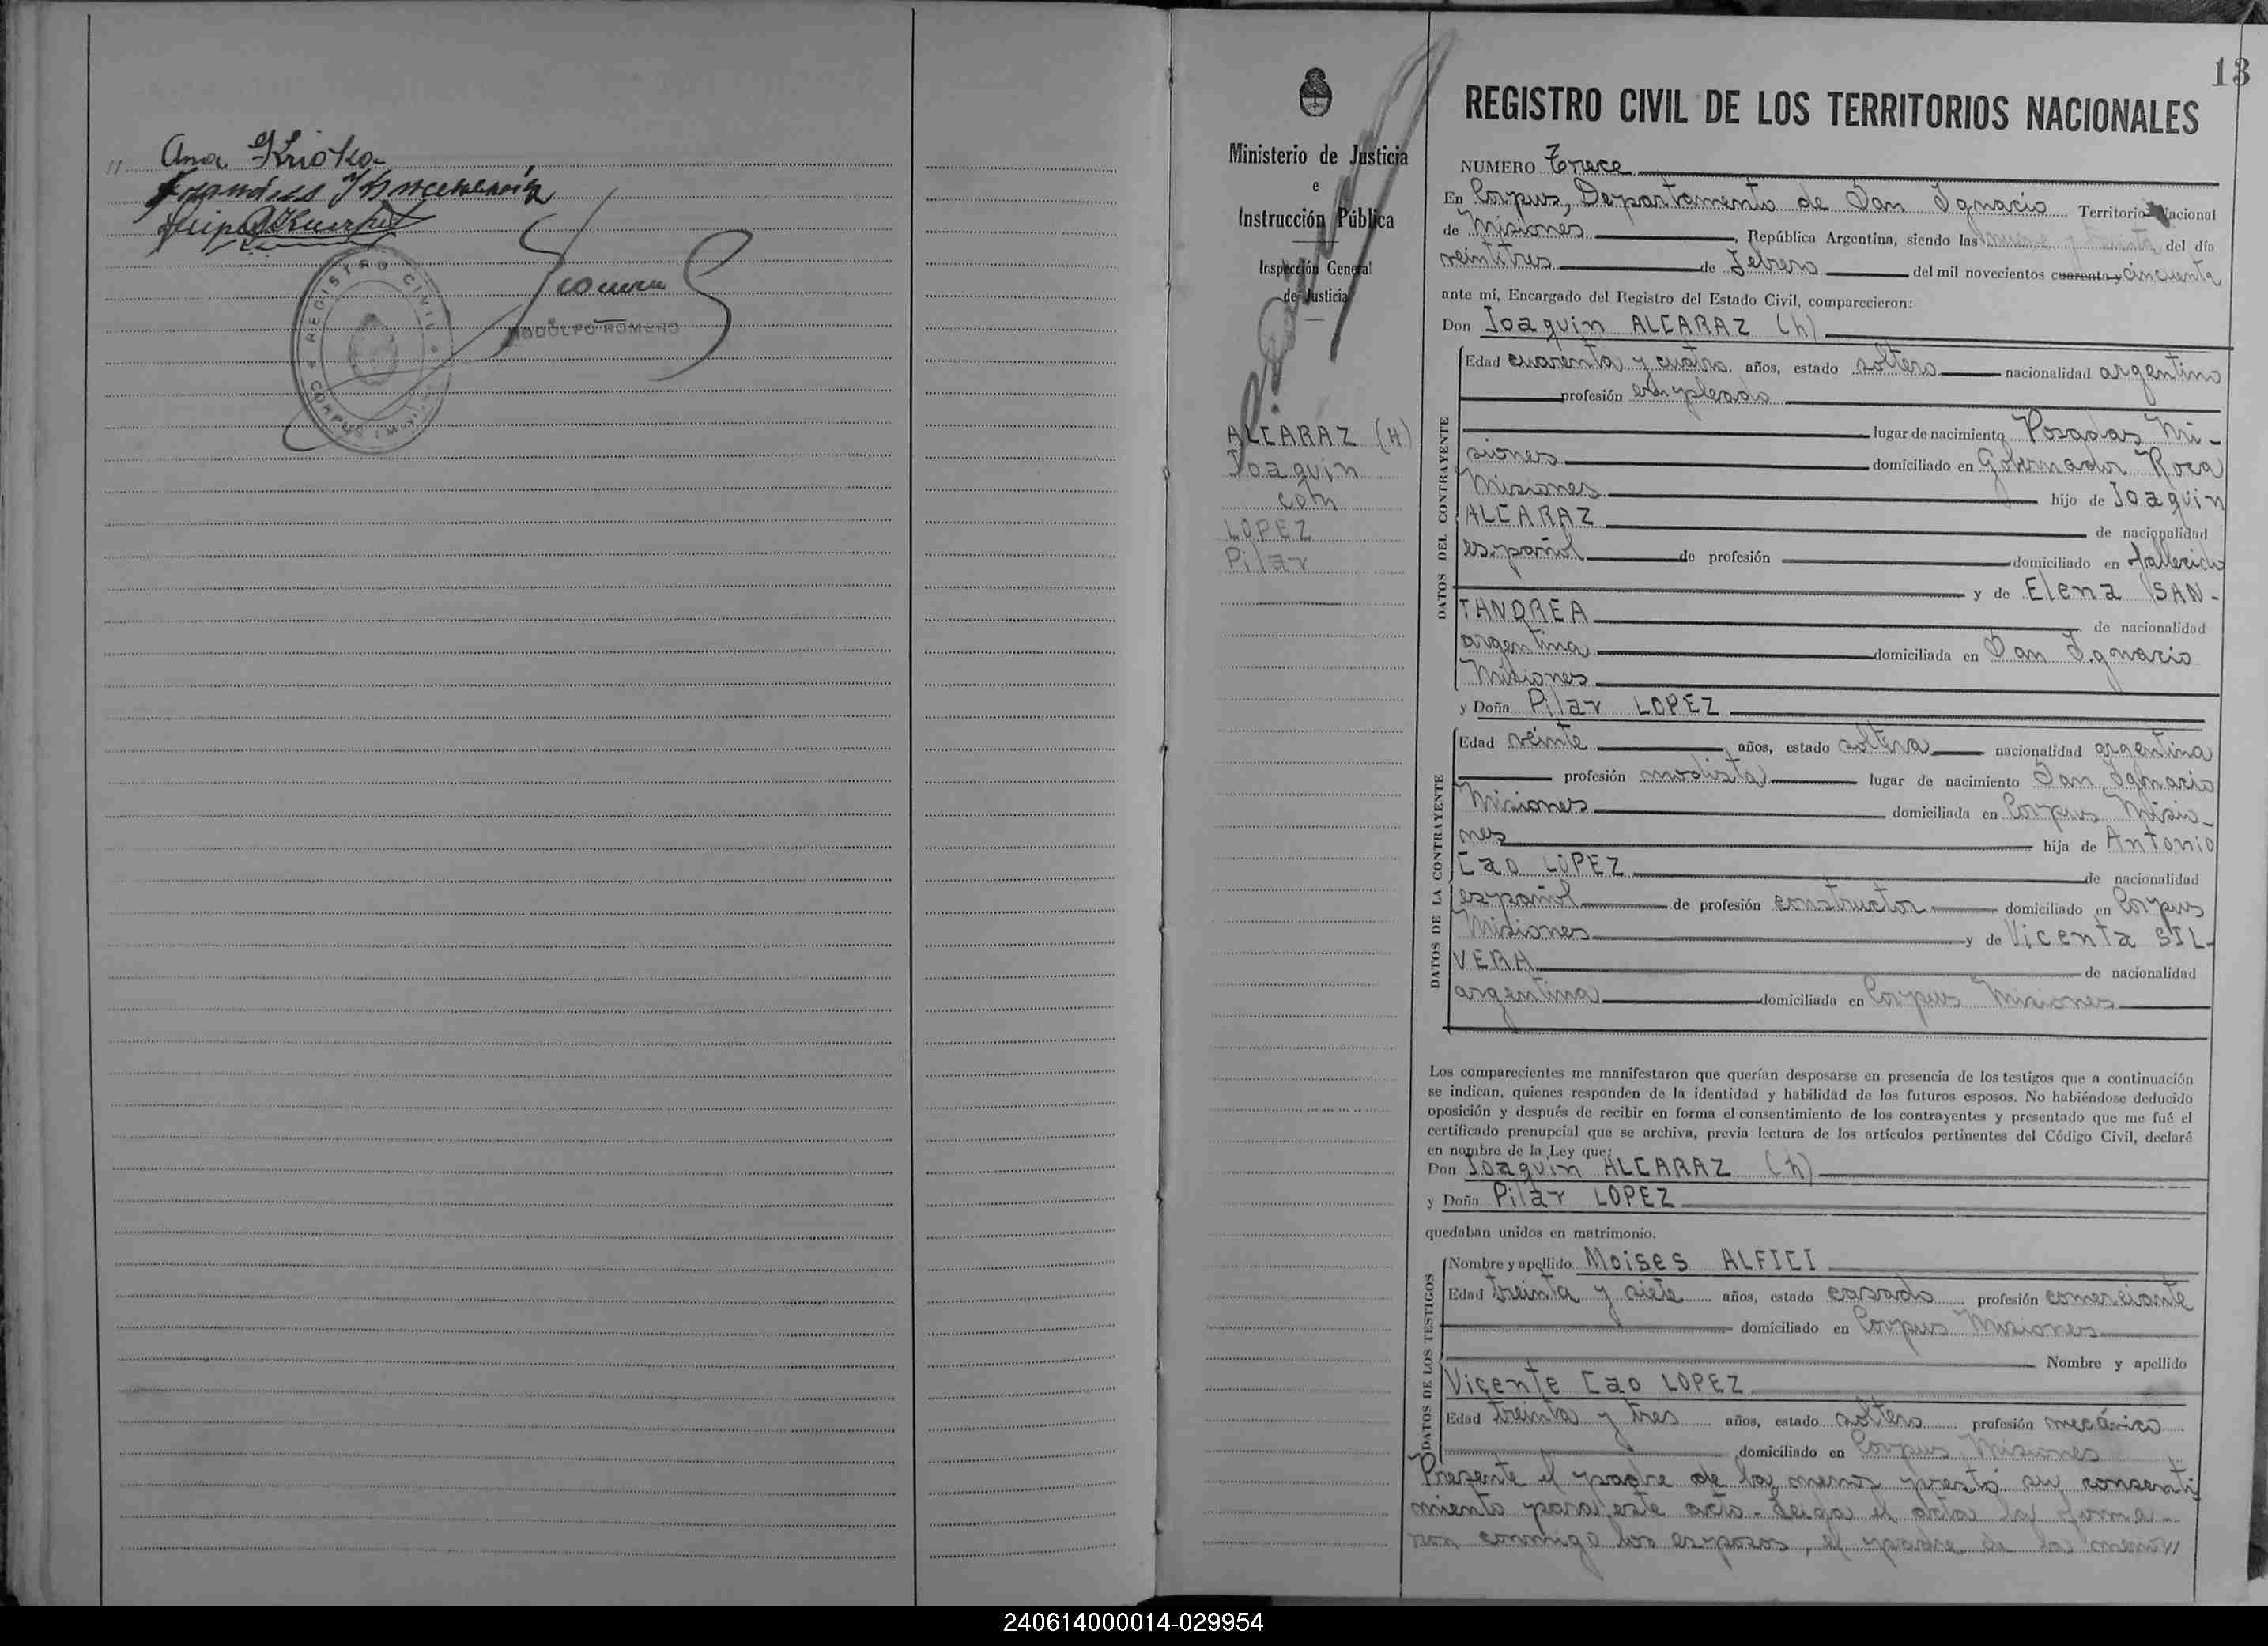 Ana
RODOLFO ROMERO
REGISTRO CIVIL
CORPUS (Mnes.)
13
Ministerio de Justicia
e
Instrucción Pública
Inspección General
de Justicia
ALCARAZ (H)
Joaquin
con
LOPEZ
Pilar
REGISTRO CIVIL DE LOS TERRITORIOS NACIONALES
NUMERO Trece
En Corpus, Departamento de San Ignacio Territorio Nacional
de Misiones, República Argentina, siendo las nueve y treinta del día
veintitres de Febrero del mil novecientos cuarenta y cincuenta
ante mí, Encargado del Registro del Estado Civil, comparecieron:
Don Joaquin ALCARAZ (h)
DATOS DEL CONTRAYENTE
Edad cuarenta y cuatro años, estado soltero nacionalidad argentino
profesión empleado
lugar de nacimiento Posadas Mi-
siones domiciliado en Gobernador Roca
Misiones hijo de Joaquin
ALCARAZ de nacionalidad
español de profesión domiciliado en fallecido
y de Elena SAN-
TANDREA de nacionalidad
argentina domiciliada en San Ignacio
Misiones
y Doña Pilar LOPEZ
DATOS DE LA CONTRAYENTE
Edad veinte años, estado soltera nacionalidad argentina
profesión modista lugar de nacimiento San Ignacio
Misiones domiciliada en Corpus Misio-
nes hija de Antonio
Cao LOPEZ de nacionalidad
español de profesión constructor domiciliado en Corpus
Misiones y de Vicenta SIL-
VERA de nacionalidad
argentina domiciliada en Corpus Misiones
Los comparecientes me manifestaron que querían desposarse en presencia de los testigos que a continuación
se indican, quienes responden de la identidad y habilidad de los futuros esposos. No habiéndose deducido
oposición y después de recibir en forma el consentimiento de los contrayentes y presentado que me fué el
certificado prenupcial que se archiva, previa lectura de los artículos pertinentes del Código Civil, declaré
en nombre de la Ley que:
Don Joaquin ALCARAZ (h)
y Doña Pilar LOPEZ
quedaban unidos en matrimonio.
DATOS DE LOS TESTIGOS
Nombre y apellido Moises ALFICI
Edad treinta y siete años, estado casado profesión comerciante
domiciliado en Corpus Misiones
Nombre y apellido
Vicente Cao LOPEZ
Edad treinta y tres años, estado soltero profesión mecánico
domiciliado en Corpus Misiones
Presente el padre de la menor prestó su consenti
miento para este acto - Leida el acta la firma-
ron conmigo los esposos, el padre de la menor//
240614000014-029954